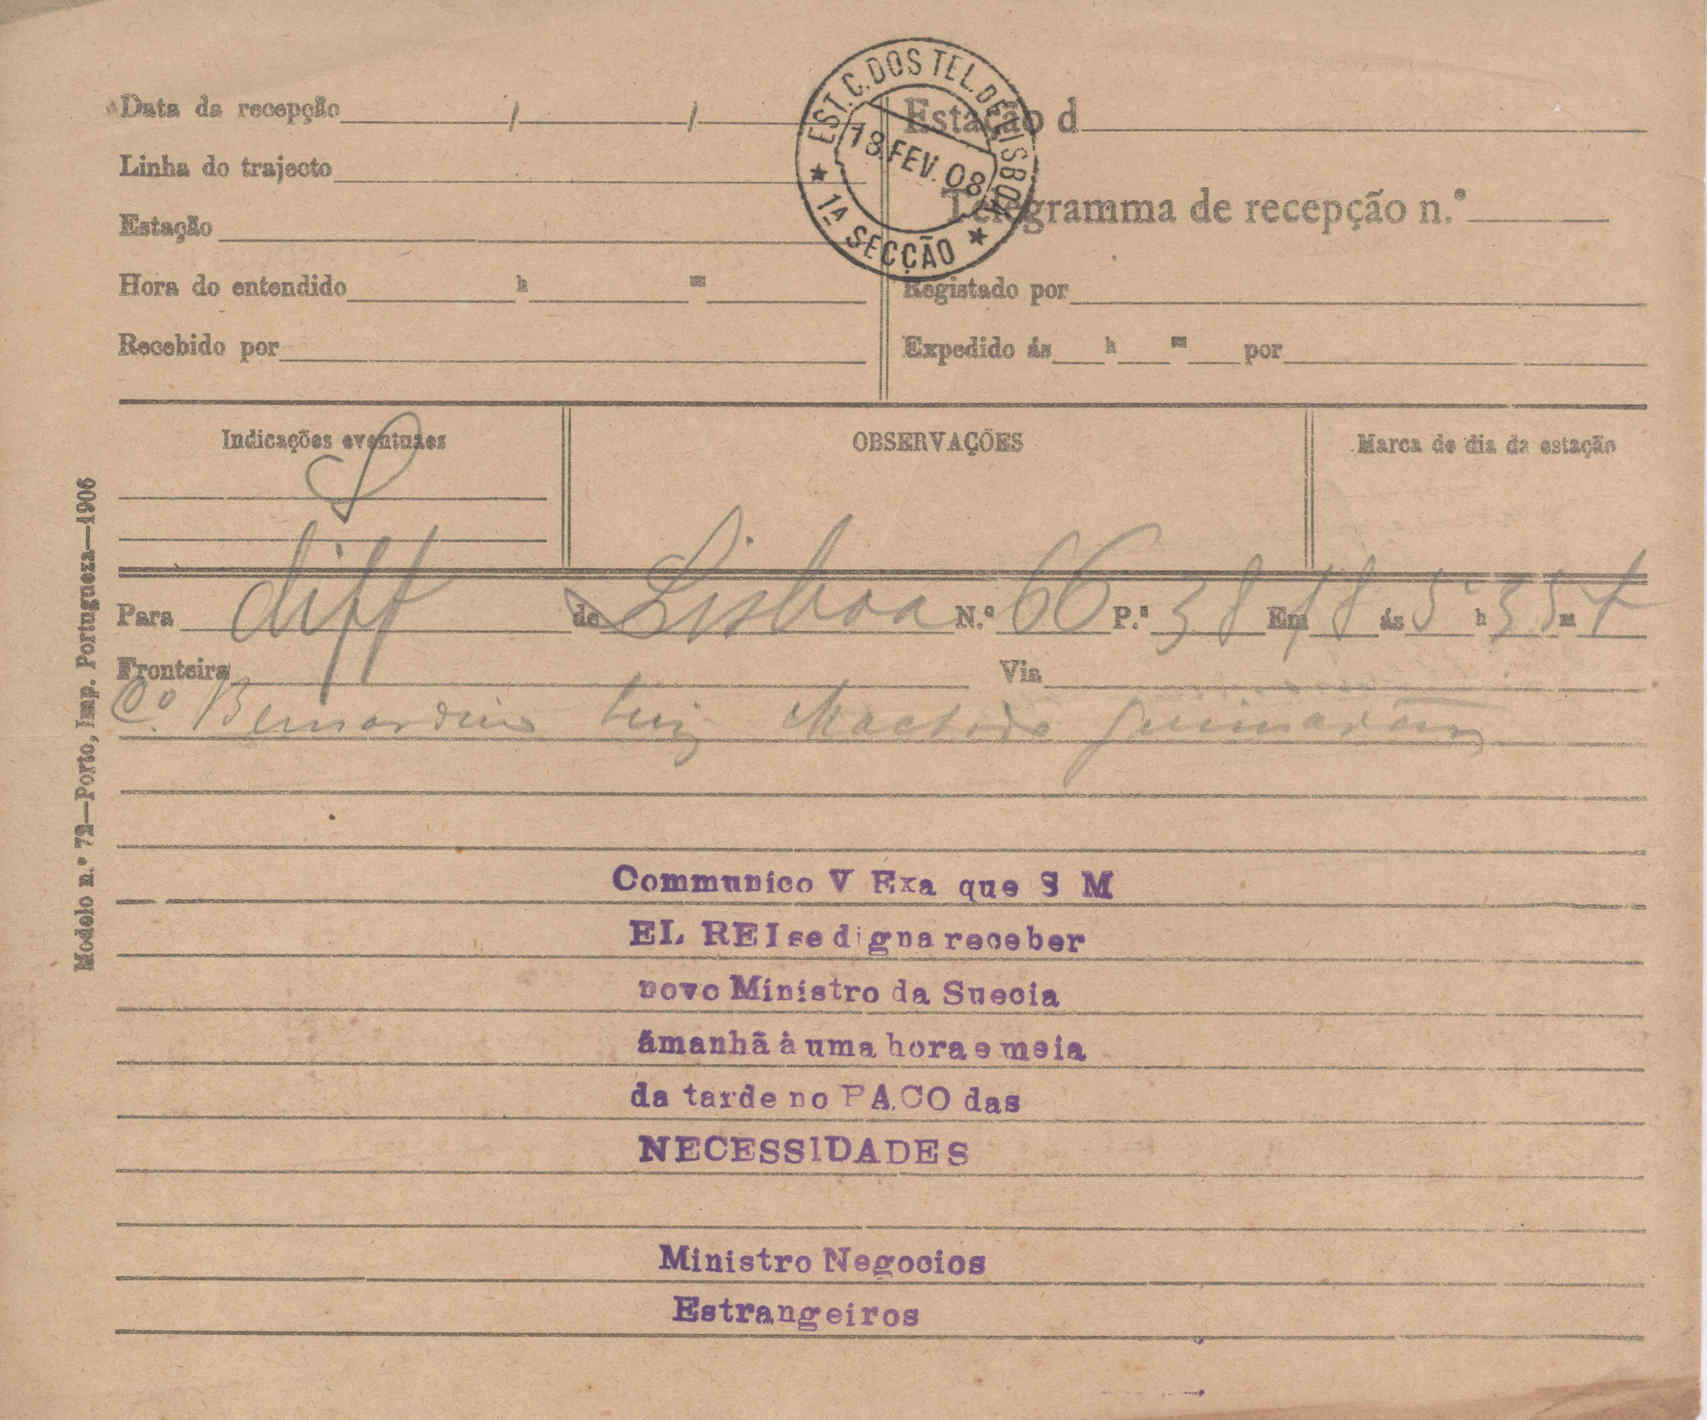 Data da recepção / /
Linha do trajecto
Estação
Hora do entendido h m
Recebido por
EST. C. DOS TEL. DE LISBOA
18. FEV. 08
1A SECÇÃO
Estação d
Telegramma de recepção n.º
Registado por
Expedido ás h m por
Indicações eventuaes
OBSERVAÇÕES
Marca de dia da estação
Modelo n.º 72—Porto, Imp. Portugueza—1906
Para diff de Lisboa N.º 66 P.ª 38 Em 18 ás 5 h 35 m t
Fronteira Via
Co. Bernardino Luiz Machado Guimarães
Communico V Exa que S M
EL REI se digna receber
novo Ministro da Suecia
âmanhã à uma hora e meia
da tarde no PACO das
NECESSIDADES
Ministro Negocios
Estrangeiros